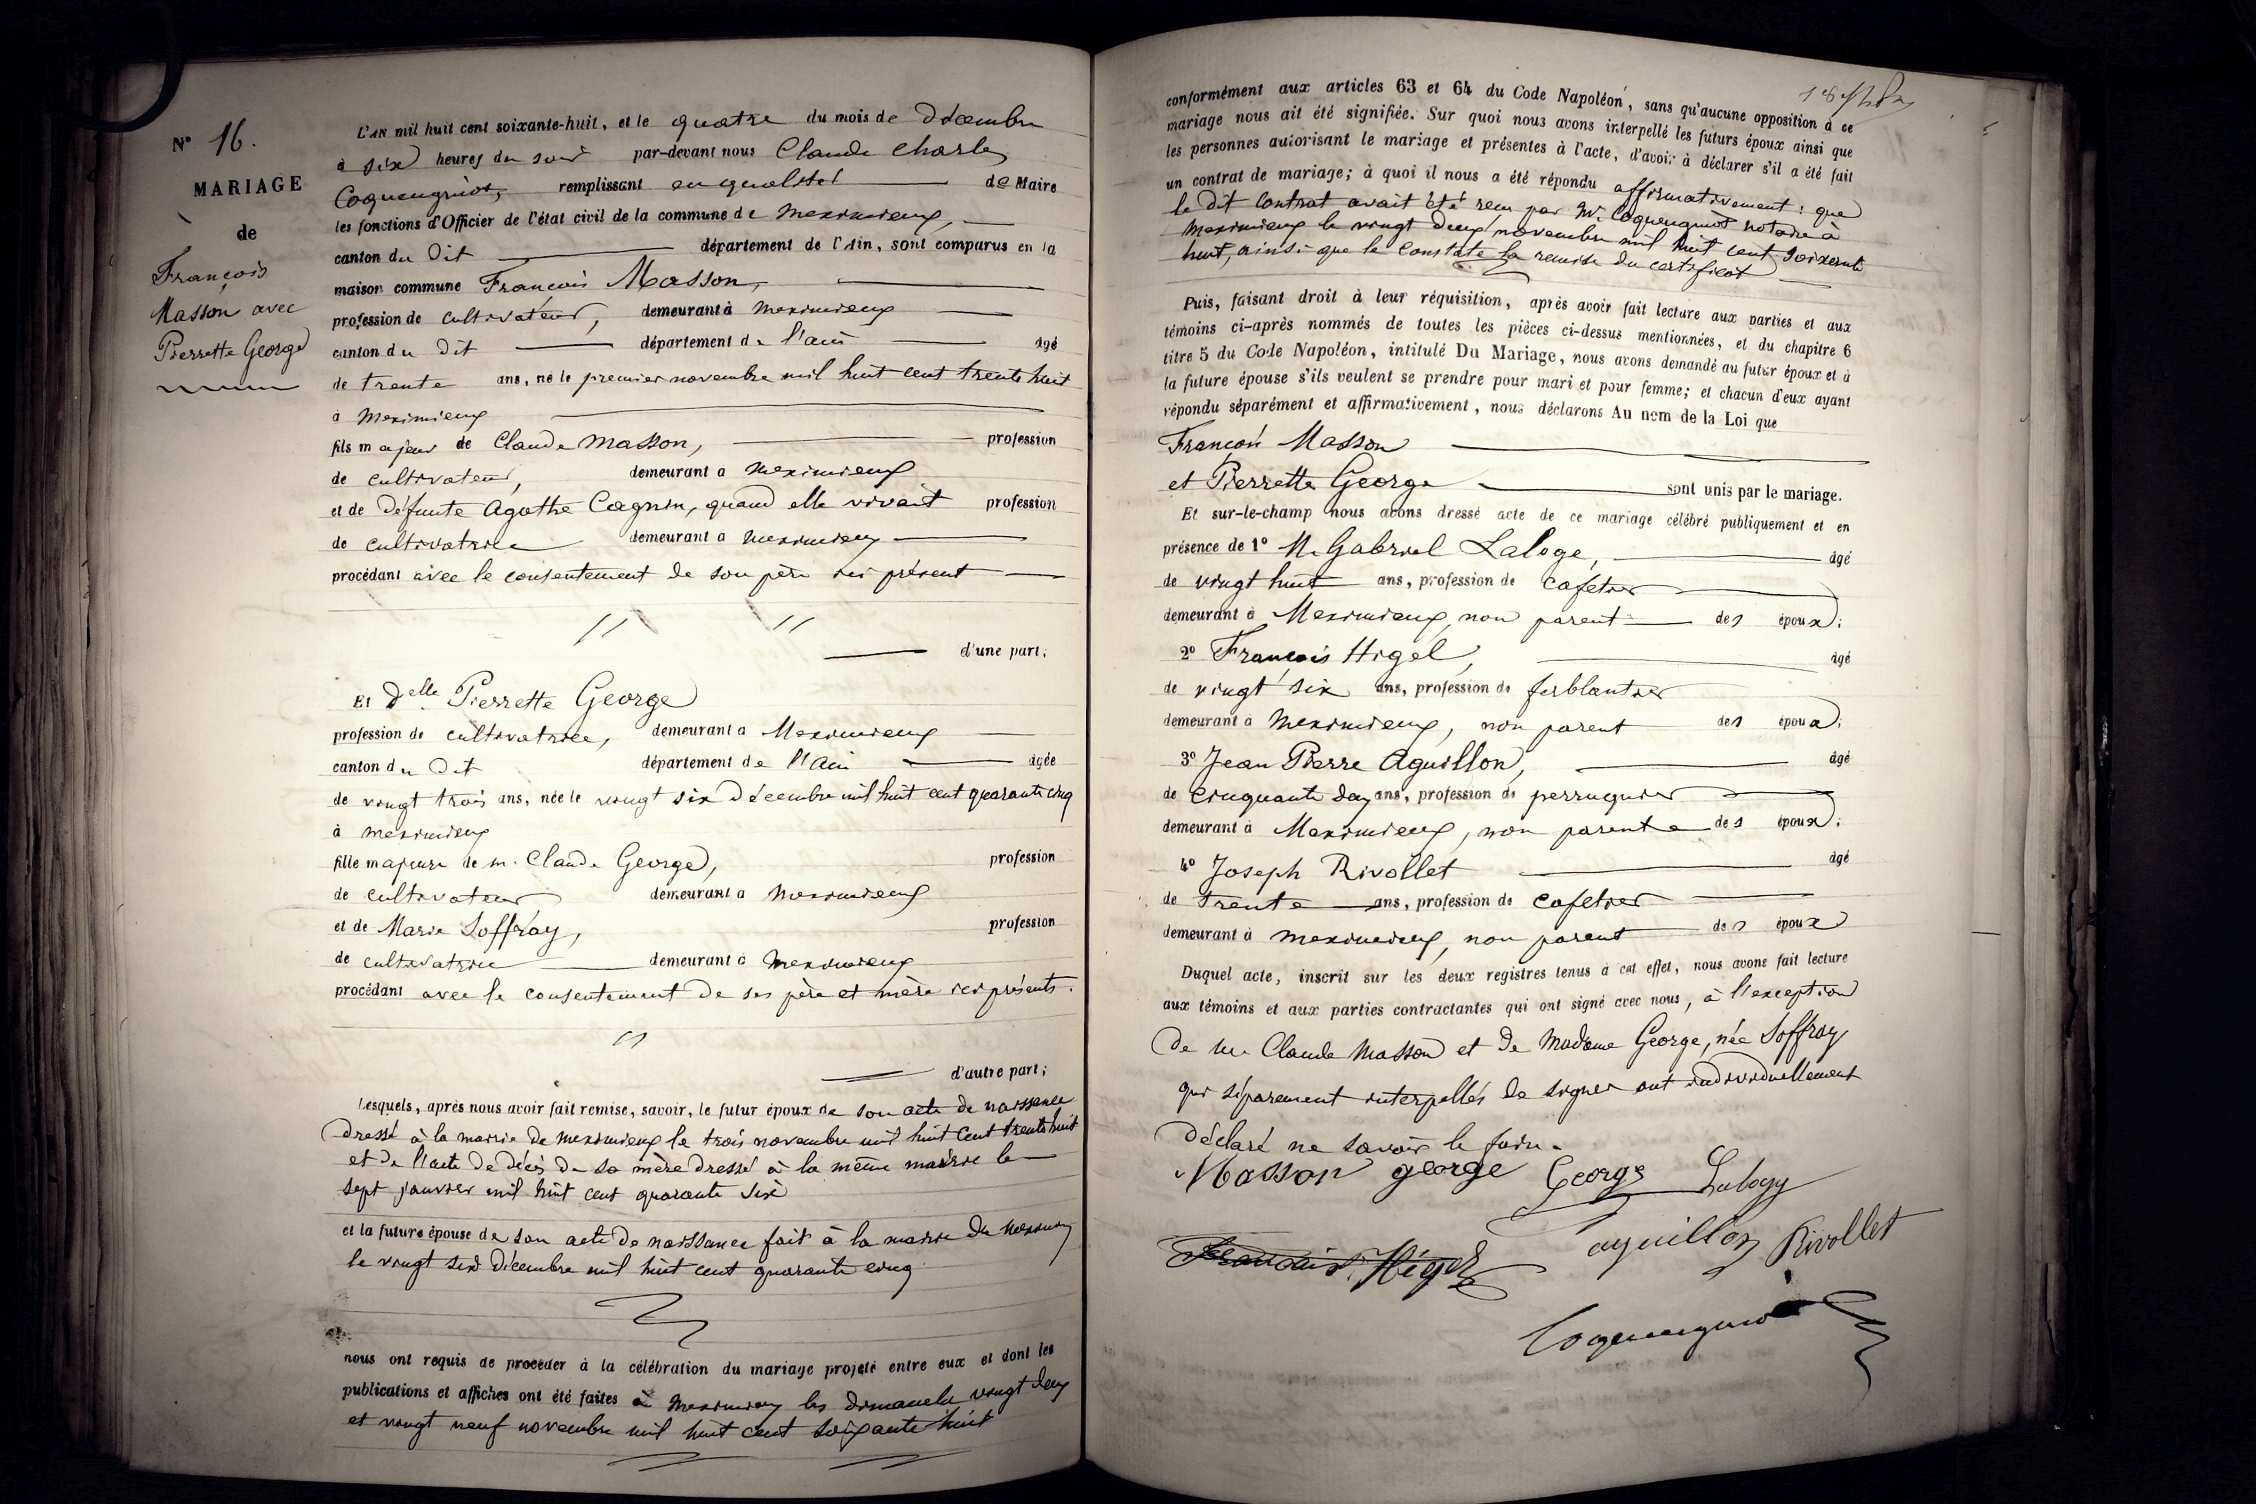 N° 16.
MARIAGE
de
François
Masson avec
Pierrette George
L'AN mil huit cent soixante-huit, et le quatre du mois de Décembre
à six heures du soir par-devant nous Claude Charles
Coquengniot, remplissant en qualité de Maire
les fonctions d'Officier de l'état civil de la commune de Meximieux,
canton du dit département de l'Ain, sont comparus en la
maison commune François Masson,
profession de cultivateur, demeurant à Meximieux
canton du dit département de l'ain âgé
de trente ans, né le premier novembre mil huit cent trente huit
à Meximieux
fils majeur de Claude Masson, profession
de cultivateur, demeurant à Meximieux
et de défunte Agathe Cagnin, quand elle vivait profession
de cultivatrice demeurant à Meximieux
procédant avec le consentement de son père ici présent
d'une part;
Et Delle Pierrette George
profession de cultivatrice, demeurant à Meximieux
canton du dit département de l'Ain âgée
de vingt trois ans, née le vingt six décembre mil huit cent quarante cinq
à Meximieux
fille majeure de m. Claude George, profession
de cultivateur demeurant à Meximieux
et de Marie Soffray, profession
de cultivatrice demeurant à Meximieux
procédant avec le consentement de ses père et mère ici présents.
d'autre part;
Lesquels, après nous avoir fait remise, savoir, le futur époux de son acte de naissance
dressé à la mairie de Meximieux le trois novembre mil huit cent trente huit
et de l'acte de décès de sa mère dressé à la même mairie le
sept janvier mil huit cent quarante six
et la future épouse de son acte de naissance fait à la mairie de Meximieux
le vingt six décembre mil huit cent quarante cinq
nous ont requis de procéder à la célébration du mariage projeté entre eux et dont les
publications et affiches ont été faites à Meximieux les dimanche vingt deux
et vingt neuf novembre mil huit cent soixante huit
conformément aux articles 63 et 64 du Code Napoléon, sans qu'aucune opposition à ce
mariage nous ait été signifiée. Sur quoi nous avons interpellé les futurs époux ainsi que
les personnes autorisant le mariage et présentes à l'acte, d'avoir à déclarer s'il a été fait
un contrat de mariage; à quoi il nous a été répondu affirmativement : que
le dit contrat avait été reçu par Me Coquengniot notaire à
Meximieux le vingt deux novembre mil huit cent soixante
huit, ainsi que le constate la remise du certificat
Puis, faisant droit à leur réquisition, après avoir fait lecture aux parties et aux
témoins ci-après nommés de toutes les pièces ci-dessus mentionnées, et du chapitre 6
titre 5 du Code Napoléon, intitulé Du Mariage, nous avons demandé au futur époux et à
la future épouse s'ils veulent se prendre pour mari et pour femme; et chacun d'eux ayant
répondu séparément et affirmativement, nous déclarons Au nom de la Loi que
François Masson
et Pierrette George sont unis par le mariage.
Et sur-le-champ nous avons dressé acte de ce mariage célébré publiquement et en
présence de 1° M. Gabriel Laloge, âgé
de vingt huit ans, profession de cafetier
demeurant à Meximieux, non parent des époux;
2° François Higel, âgé
de vingt six ans, profession de ferblantier
demeurant à Meximieux, non parent des époux;
3° Jean Pierre Aguillon, âgé
de cinquante deux ans, profession de perruquier
demeurant à Meximieux, non parent des époux;
4° Joseph Rivollet âgé
de trente ans, profession de cafetier
demeurant à Meximieux, non parent des époux
Duquel acte, inscrit sur les deux registres tenus à cet effet, nous avons fait lecture
aux témoins et aux parties contractantes qui ont signé avec nous, à l'exception
de M. Claude Masson et de Madame George, née Soffray
qui séparement interpellés de signer ont individuellement
déclaré ne savoir le faire.
Masson george George Laloge
François Higel aguillon Rivollet
Coquengniot